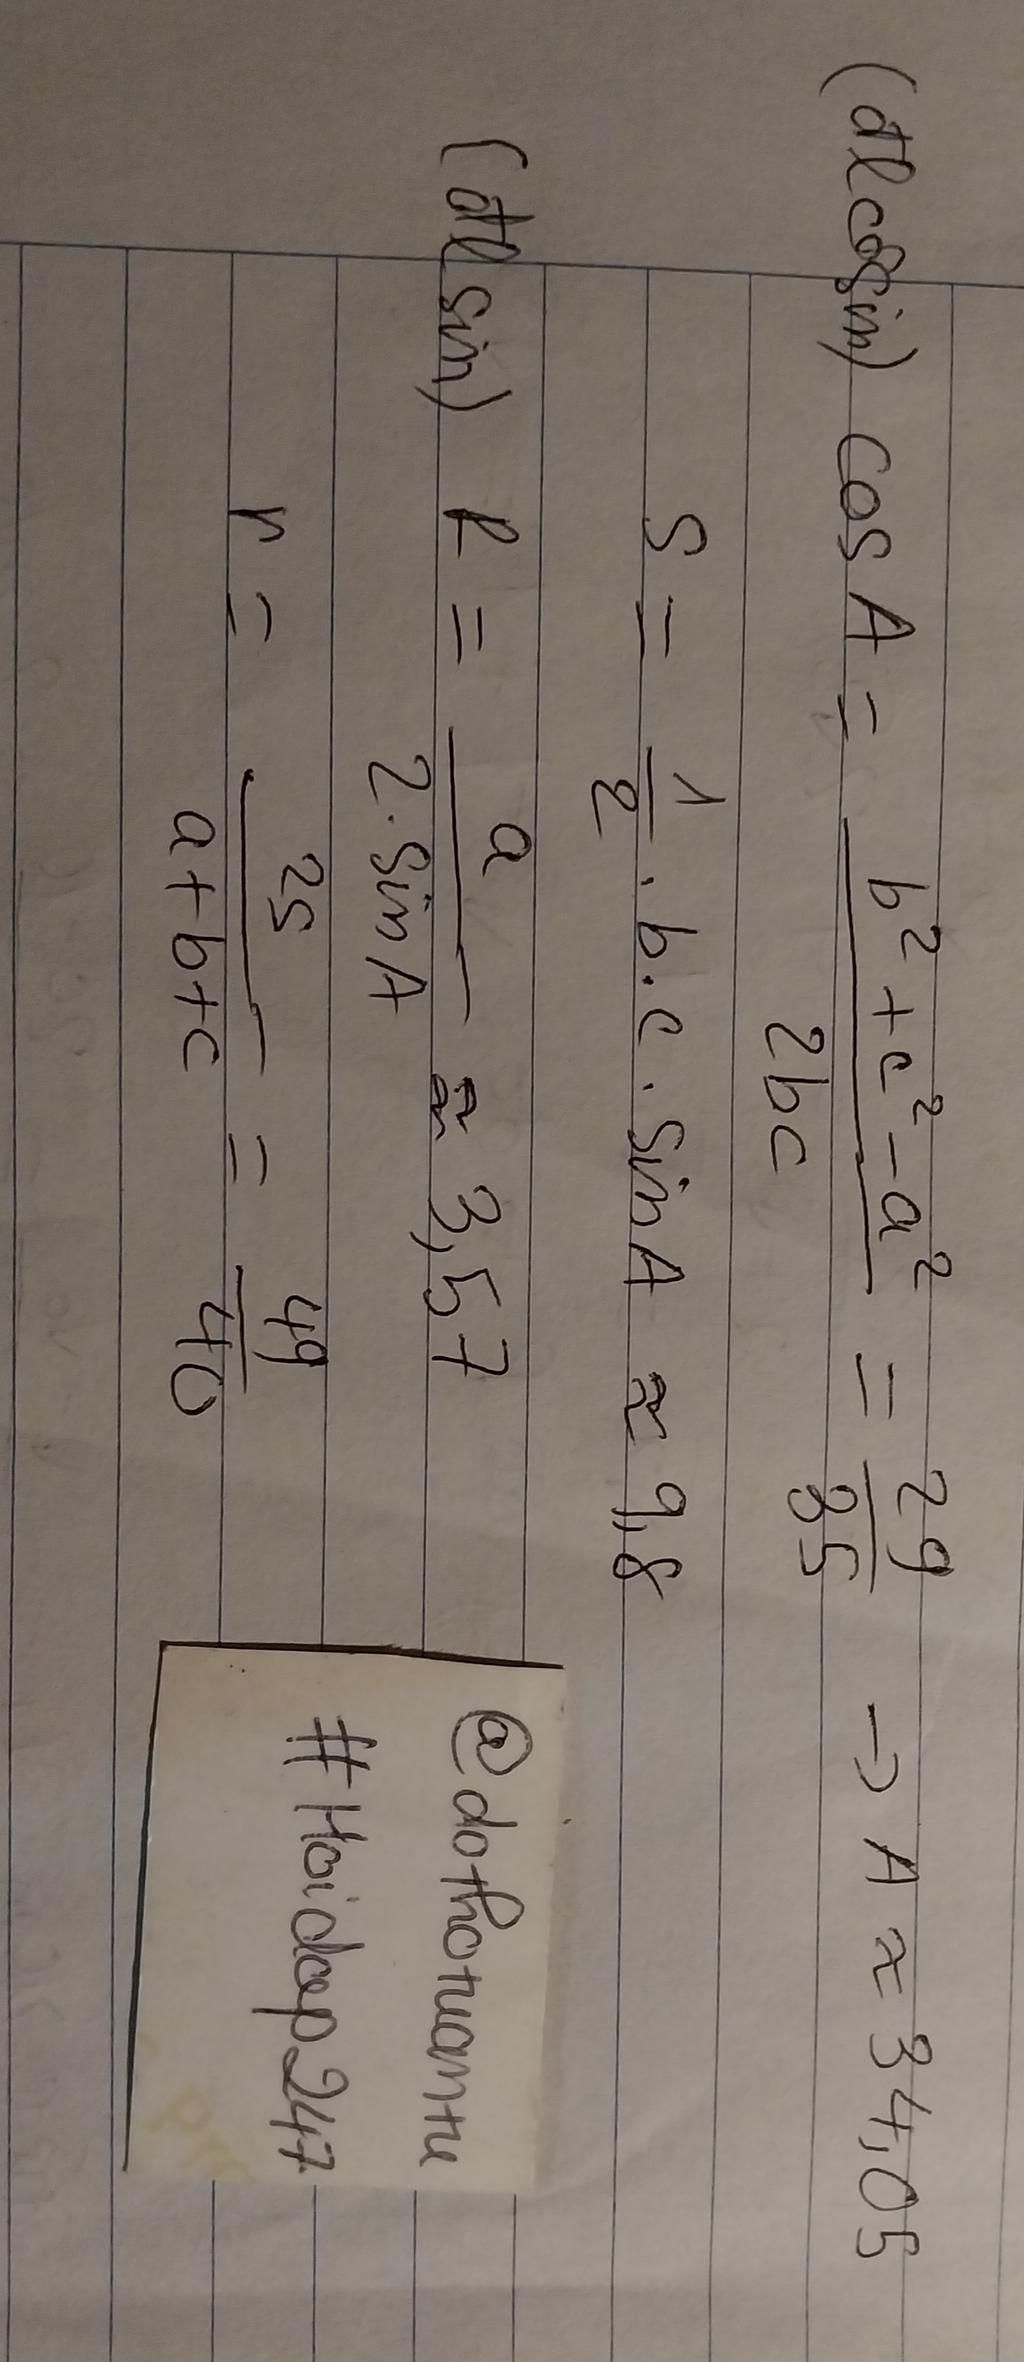 (đl cosin) cos A = b² + c² - a² / 2bc = 29/35 → A ≈ 34,05
S = 1/2 . b . c . sin A ≈ 9,8
(đl sin) R = a / 2 . sin A ≈ 3,57
r = 2S / a + b + c = 49/40
@dothotuantu
#Hoidap247